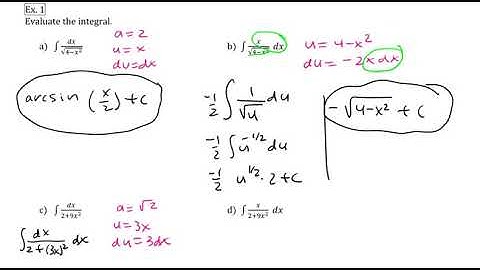 Ex. 1
Evaluate the integral.
a) ∫ dx/√(4−x²)
a = 2
u = x
du = dx
arcsin (x/2) + C
b) ∫ x/√(4−x²) dx
u = 4−x²
du = −2x dx
-1/2 ∫ 1/√u du
-1/2 ∫ u^(-1/2) du
-1/2 u^(1/2) · 2 + C
−√(4−x²) + C
c) ∫ dx/(2+9x²)
a = √2
u = 3x
du = 3dx
∫ dx/(2+(3x)²) dx
d) ∫ x/(2+9x²) dx